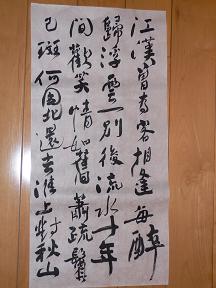 江漢曾為客相逢每醉
歸浮雲一別後流水十年
間歡笑情如舊蕭疏鬢
已斑何因北還去淮上對秋山